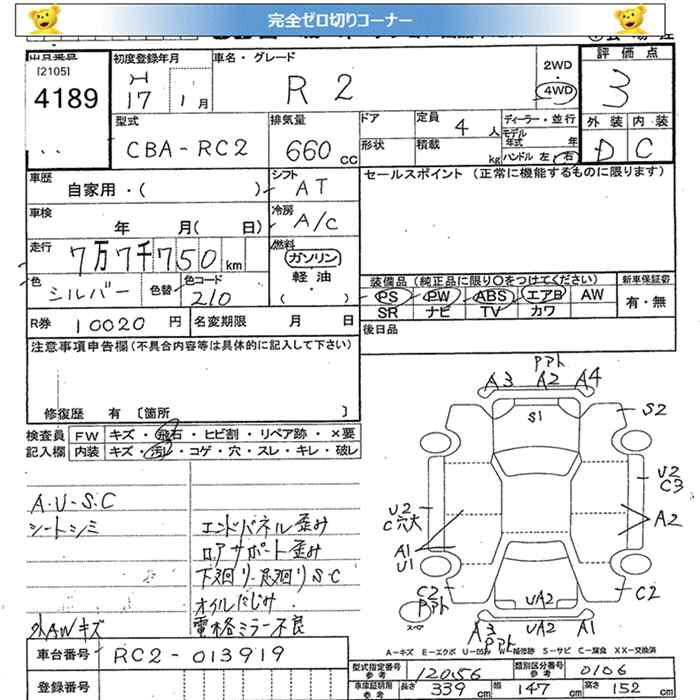 完全ゼロ切りコーナー
出品番号 初度登録年月 車名・グレード 2WD・4WD 評価点
[2105] H R2 3
4189 17年 1月 外装 内装
型式 排気量 ドア 定員 4人 ディーラー・並行
モデル年式 年
CBA-RC2 660cc 形状 積載 kg ハンドル 左・右 D C
車歴 シフト セールスポイント(正常に機能するものに限ります)
自家用・( ) AT
車検 冷房
年 月( 日) A/C
走行 燃料
7万7千750km ガソリン
色 色替 色コード 軽・油 装備品(純正品に限り○をつけてください) 新車保証書
シルバー 210 ( ) PS PW ABS エアB AW 有・無
SR ナビ TV カワ
R券 10020円 名変期限 月 日 後日品
注意事項申告欄(不具合内容等は具体的に記入して下さい)
修復歴 有 [箇所 ]
検査員 FW キズ・飛石・ヒビ割・リペア跡・×要
記入欄 内装 キズ・汚れ・コゲ・穴・スレ・キレ・破レ
Pアト
A3 A2 A4
S1 S2
A・U-S・C
シートシミ
エンドパネル歪み
ロアサポート歪み
下廻り・足廻りS・C
オイルにじみ
外AWキズ 電格ミラー不良
U2
C3
U2
C穴大
A2
A1
U1
C2
Pアト
C2
スペア
UA2
A3 UA2 A1
Pアト
A=キズ E=エクボ U=凹み W=補修跡 S=サビ C=腐食 XX=交換済
車台番号 RC2-013919
登録番号
型式指定番号 参考 12056 類別区分番号 参考 0106
車庫証明用 参考 長さ 339cm 幅 147cm 高さ 152cm